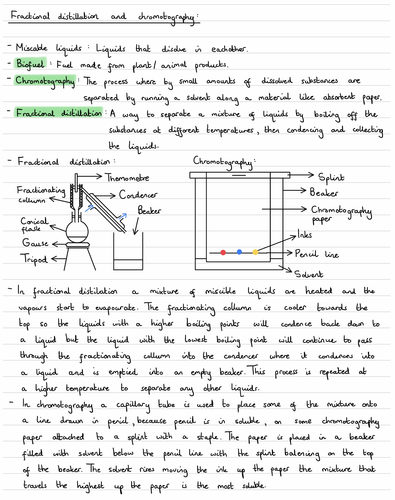 Fractional distillation and chromatography:
- Miscable liquids: Liquids that disolve in eachother.
- Biofuel: Fuel made from plant/animal products.
- Chromatography: The process where by small amounts of dissolved substances are
separated by running a solvent along a material like absorbent paper.
- Fractional distillation: A way to separate a mixture of liquids by boiling off the
substances at different temperatures, then condencing and collecting
the liquids.
- Fractional distillation: Chromatography:
Thermometre
Fractionating
collumn
Condencer
Beaker
Conical
flask
Gauze
Tripod
Splint
Beaker
Chromatography
paper
Inks
Pencil line
Solvent
- In fractional distilation a mixture of miscible liquids are heated and the
vapours start to evapourate. The fractionating collumn is cooler towards the
top so the liquids with a higher boiling points will condence back down to
a liquid but the liquid with the lowest boiling point will continue to pass
through the fractionating collumn into the condencer where it condences into
a liquid and is emptied into an empty beaker. This process is repeated at
a higher temperature to separate any other liquids.
- In chromatography a capillary tube is used to place some of the mixture onto
a line drawn in pencil, because pencil is in soluble, on some chromotography
paper attatched to a splint with a staple. The paper is placed in a beaker
filled with solvent below the pencil line with the splint balencing on the top
of the beaker. The solvent rises moving the ink up the paper the mixture that
travels the highest up the paper is the most soluble.